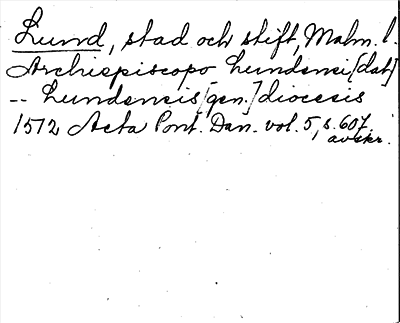 Lund, stad och stift, Malm. l.
Archiepiscopo Lundensi [dat]
-- Lundensis [gen.] diocesis
1512 Acta Pont. Dan. vol. 5, s. 607.
avskr.